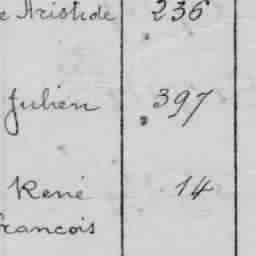 e Aristide 236
Julien 397
René 14
francois